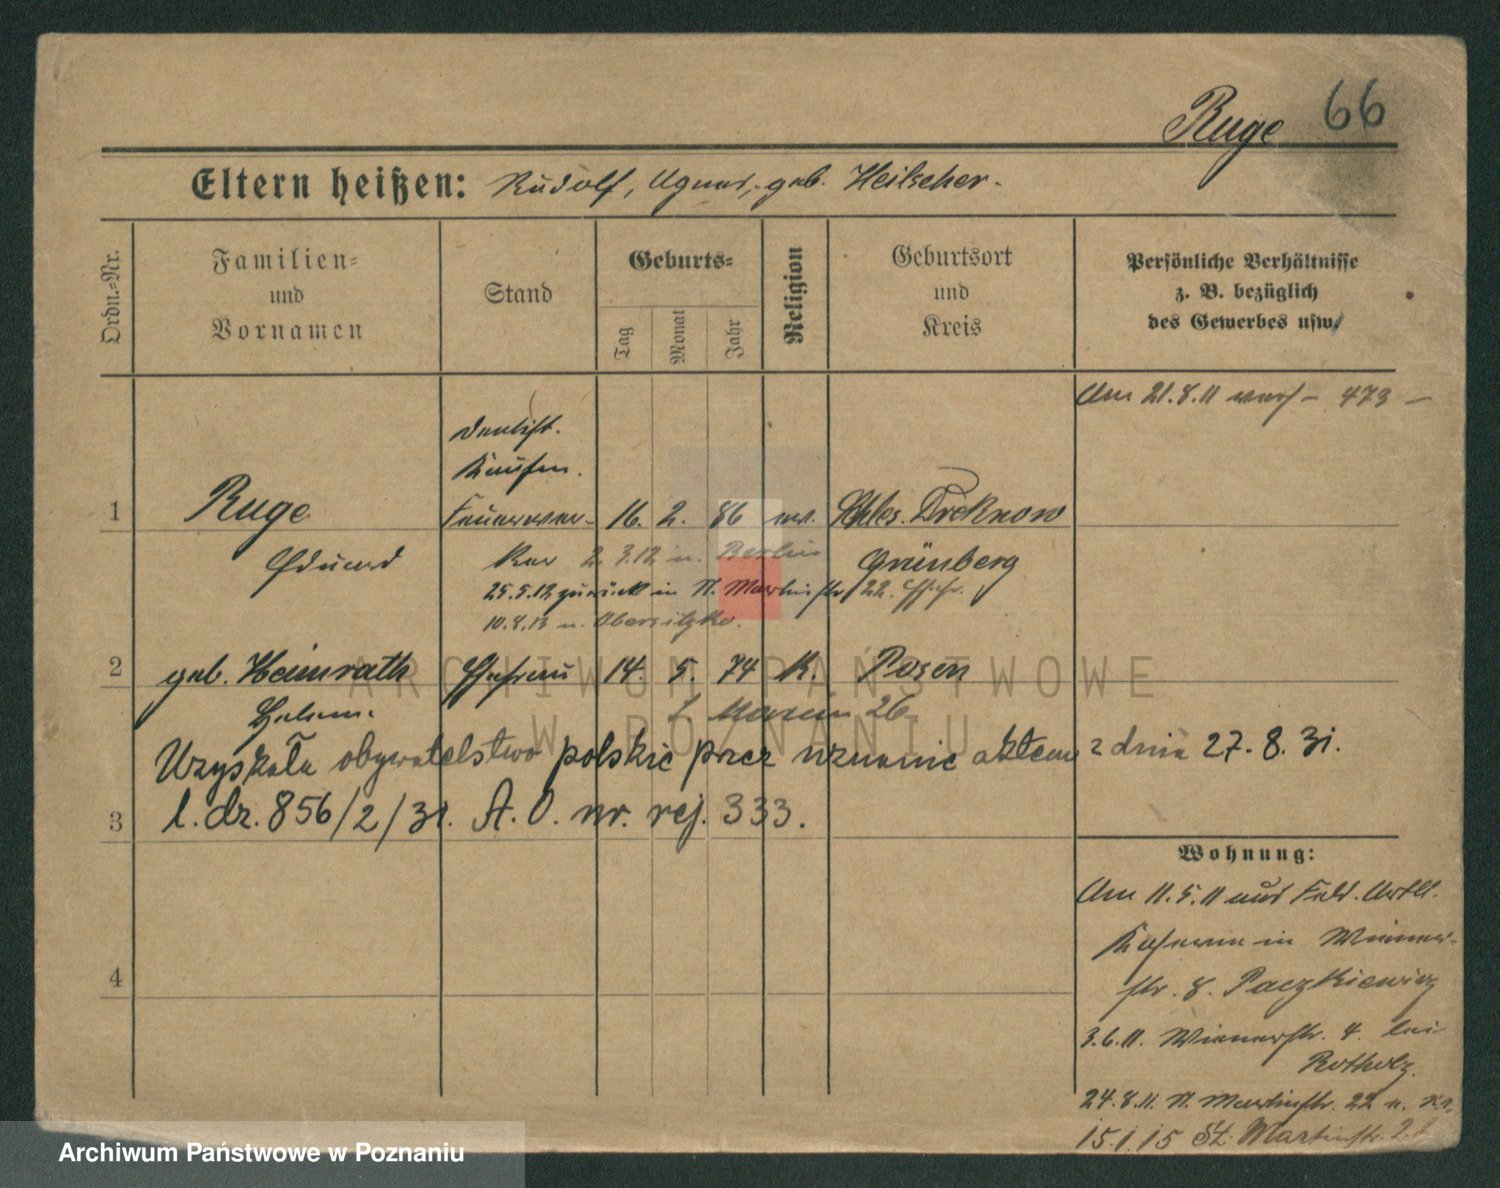 Ruge 66
Eltern heißen: Rudolf, Agnes, geb. Heilscher.
Ordn.=Nr.
Familien=
und
Vornamen
Stand
Geburts=
Tag
Monat
Jahr
Religion
Geburtsort
und
Kreis
Persönliche Verhältnisse
z. B. bezüglich
des Gewerbes usw.
Am 21.8.11 verh - 473 -
Dentist.
Kaufm.
1 Ruge Feuerwer- 16. 2. 86 ev. Schles. Dreknow
Eduard
Grünberg
2. 3.12 n. Berlin
25.5.12 zurück in St. Martinstr 22.
10.8.13 n. Obersitzko.
2 geb. Heimrath Ehefrau 14. 5. 74 K. Posen
Helene
26
Uzyskała obywatelstwo polskie przez uznanie aktem z dnia 27.8.31.
3 l. dz. 856/2/31. A.O. nr. rej. 333.
4
Wohnung:
Am 11.5.11 aus Feld. Artll.
Kaserne in Wiener-
str. 8. Paczkiewicz
3.6.11. Wienerstr. 4. bei
Rotholz.
24.8.11. St. Martinstr. 22
15.1.15 St. Martinstr.
ARCHIWUM PAŃSTWOWE
W POZNANIU
Archiwum Państwowe w Poznaniu